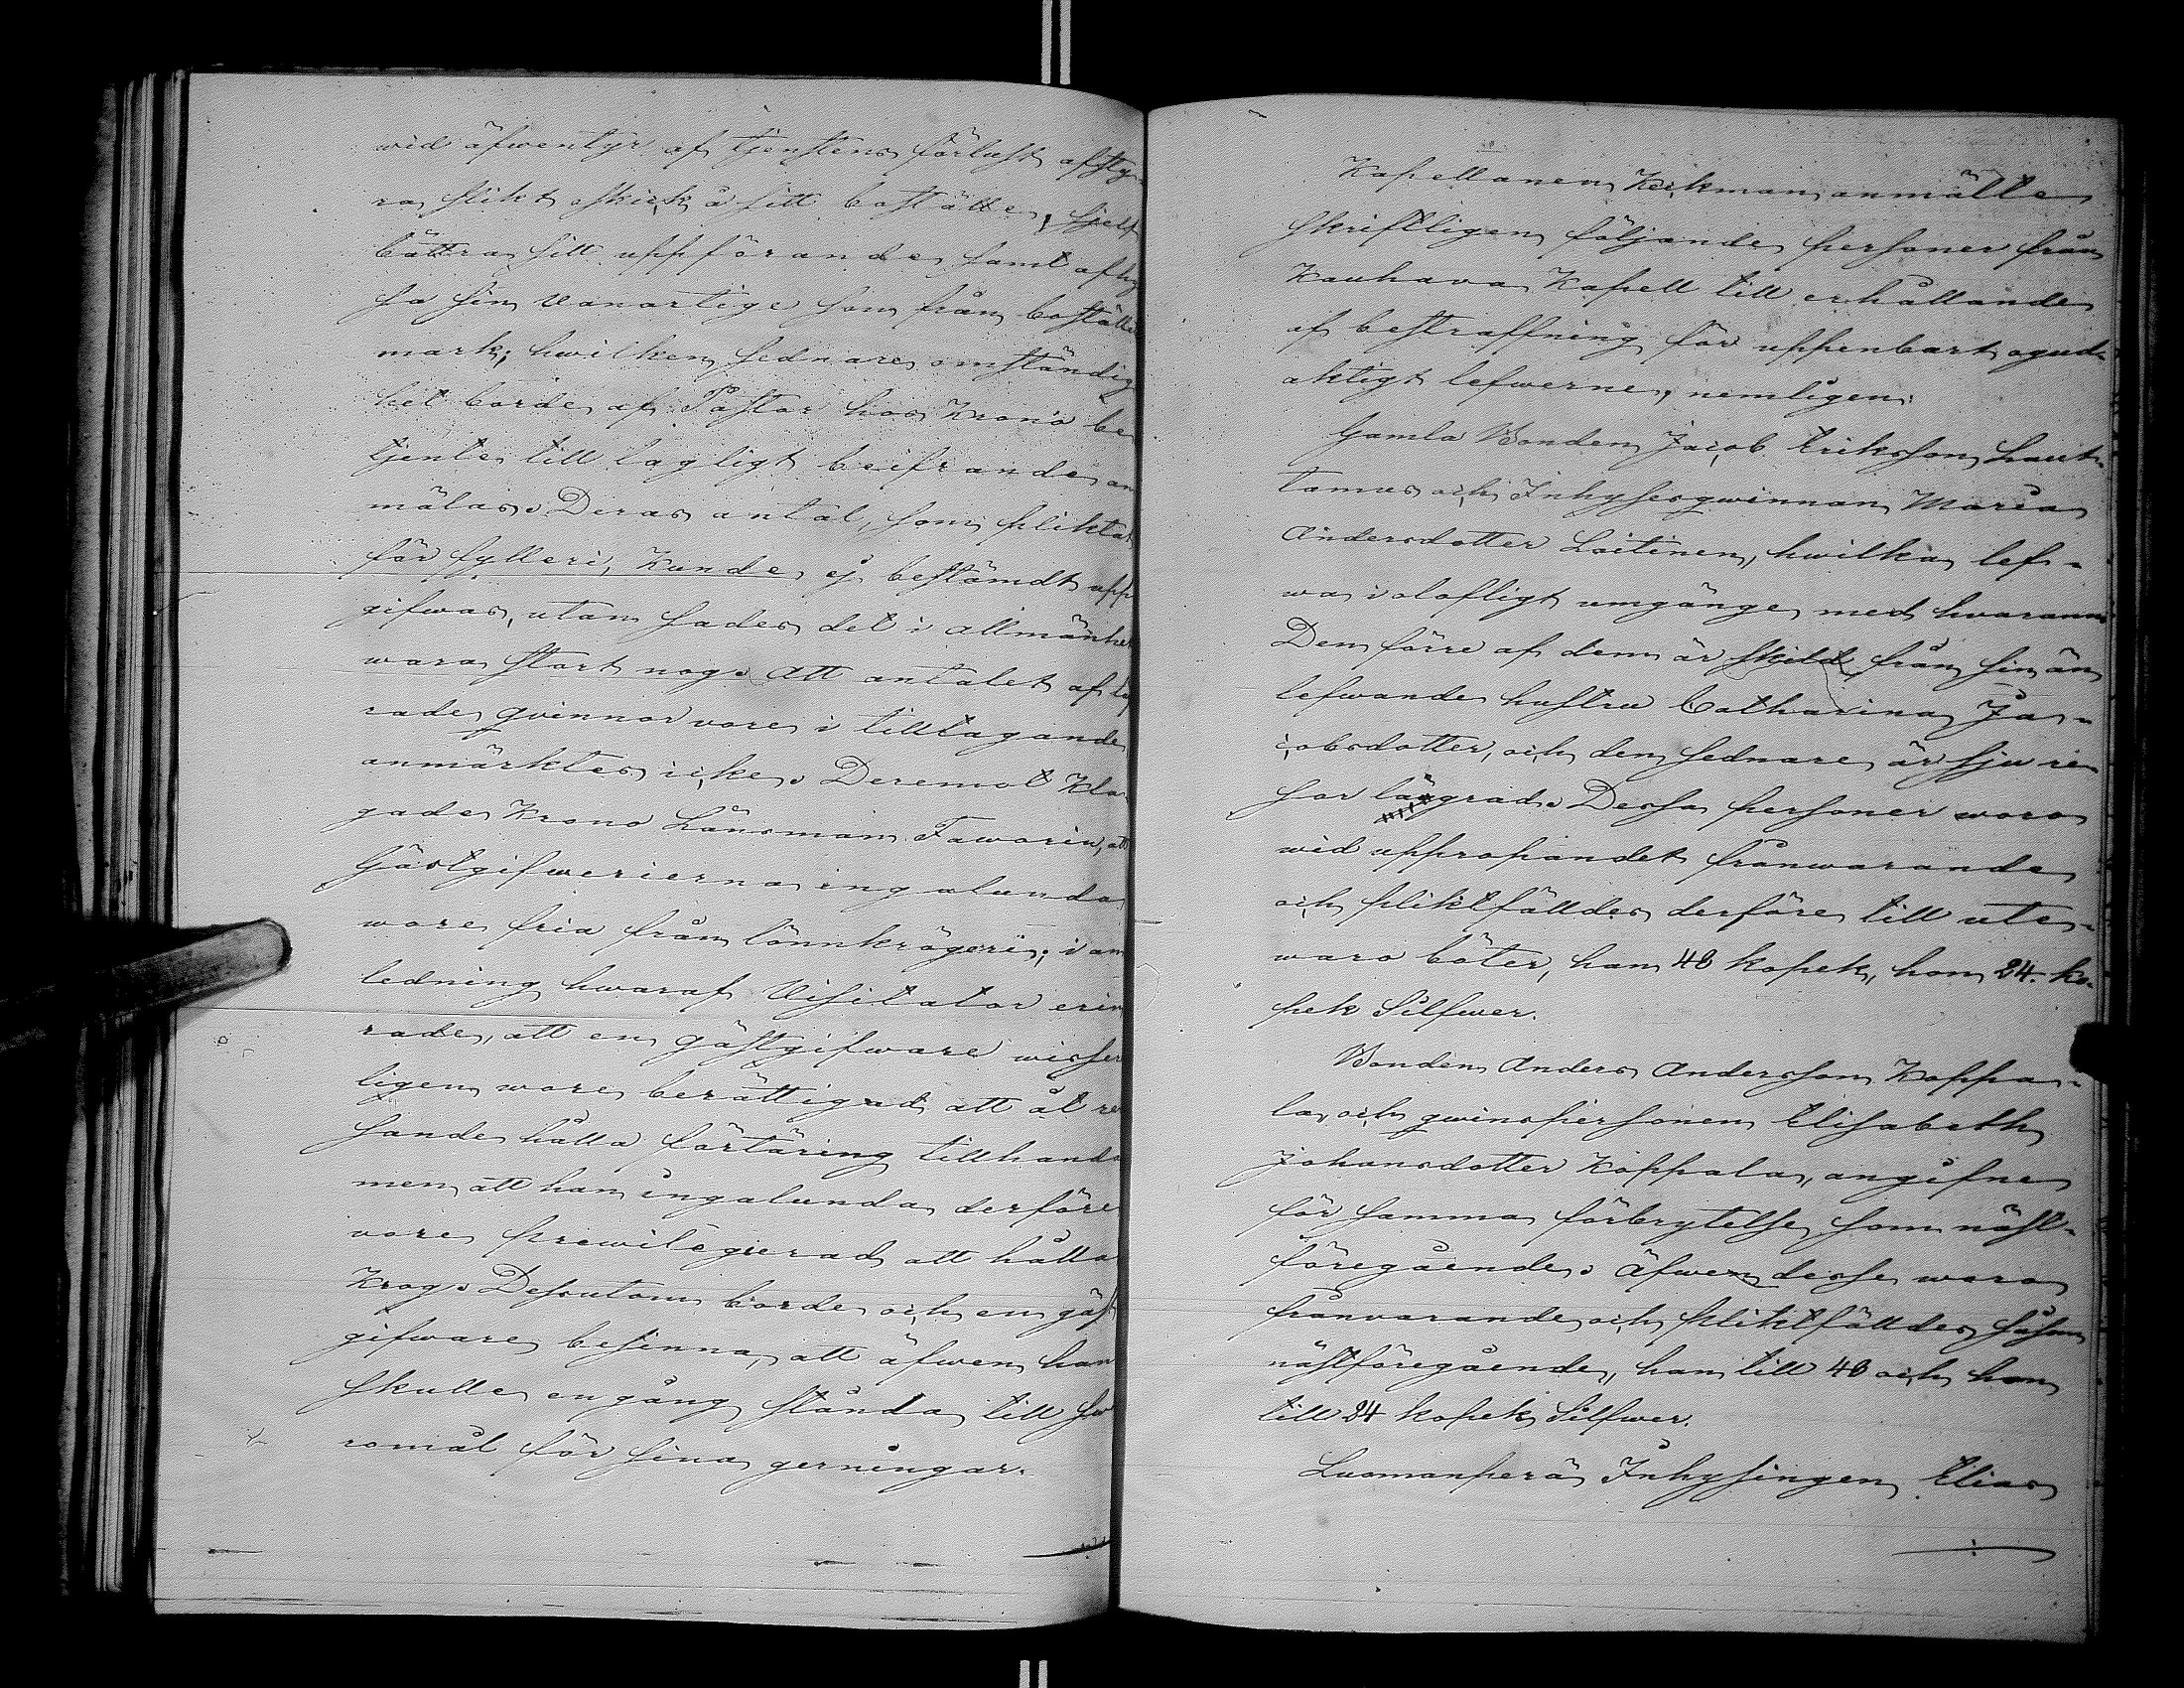 wid äfwentyr af tjenstens förlust afsty-
ra slikt oskick å sitt boställe, sjelf
bättra sitt uppförande samt afhy
sa sin vanartige son från boställe
mark; hwilken sednare omständig
het borde af Pastor hos Krono be
tjente till lagligt beifrande an
mälas. Deras antal, som pliktat
för fylleri, kunde ej bestämdt upp
gifwas, utan sades det i allmänhet
wara stort nog. Att antalet af
rade qvinnor vore i tilltagande
anmärktes icke. Deremot kla-
gade Krono Länsman Favorin, att
Gästgifwerierna ingalunda
wore fria från lönnkrögeri; i an
ledning hwaraf Visitator erin
rade, att en gästgifware wisser
ligen wore berättigad att åt re
sande hålla förtäring tillhanda
men att han ingalunda derföre
vore previlegierad att hålla
krog. Dessutom borde och en gäst
gifware besinna, att äfwen han
skulle en gång stånda till sw
romål för sina gerningar.
Kapellanen Keckman anmälte
skriftligen följande personer från
Kauhava Kapell till erhållande
af bestraffning för uppenbart ogud-
aktigt lefwerne, nemligen:
Gamla Bonden Jacob Eriksson Haut-
tamus och Inhysesqwinnan Maria
Andersdotter Loitinen, hwilka lef-
wa i olofligt umgänge med hwarann
Den förre af dem är skild från sin än
lefwande hustru Catharina Ja-
cobsdotter, och den sednare är sju re-
sor lägrad. Dessa personer woro
wid uppropandet frånwarande
och pliktfälldes derföre till ute-
waro böter, han 48 kopek, hon 24 ko-
pek Silfwer.
Bonden Anders Andersson Koppa-
la och qwinspersonen Elisabeth
Johansdotter Koppala, angifne
för samma förbrytelse som näst-
föregående. Äfwen desse woro
frånvarande och pliktfälldes såsom
nästföregående, han till 48 och hon
till 24 kopek Silfwer.
Luomanperä Inhysingen Elias